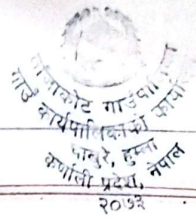 गाउँपालिका
गाउँ कार्यपालिकाको कार्यालय
हुम्ला
कर्णाली प्रदेश, नेपाल
२०७३